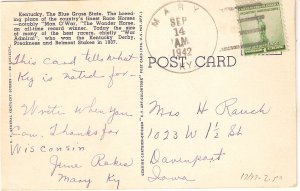 Kentucky, The Blue Grass State. The breed-
ing place of the country's finest Race Horses
—notably "Man O'War," The Wonder Horse.
Today the sire of many of the best racers, chiefly "War
Admiral", who won the Kentucky Derby,
Preakness and Belmont Stakes in 1937.
MARY
SEP
14
AM
1942
KY.
POST CARD
This card tells what
Ky is noted for—
Write When you
Can. Thanks for
Wisconsin
June
Mary Ky
Mrs H Rauch
1023 W 1½ St
Davenport
Iowa